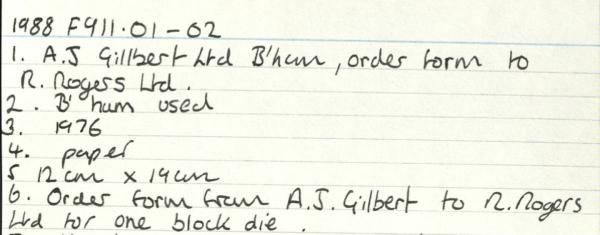 1988 F911.01-02
1. A.J Gillbert Ltd B'ham, order form to
R. Rogers Ltd.
2. B'ham used
3. 1976
4. paper
5 12cm x 19cm
6. Order form from A.J. Gilbert to R. Rogers
Ltd for one block die.